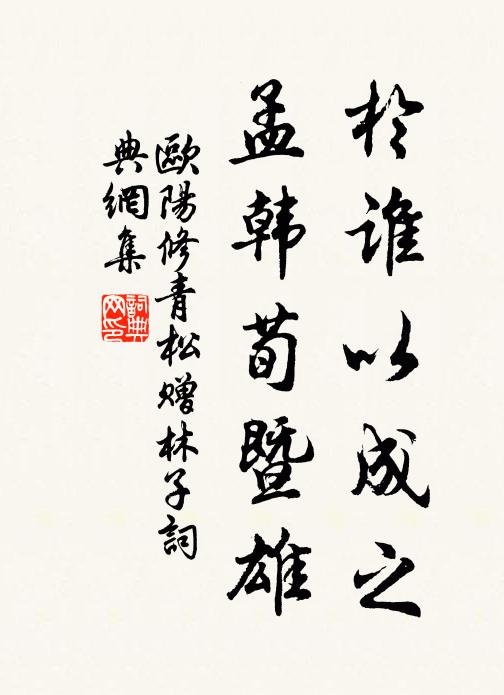 於誰以成之
孟韓荀暨雄
歐陽修青松贈林子詞
典網集
詞典網印